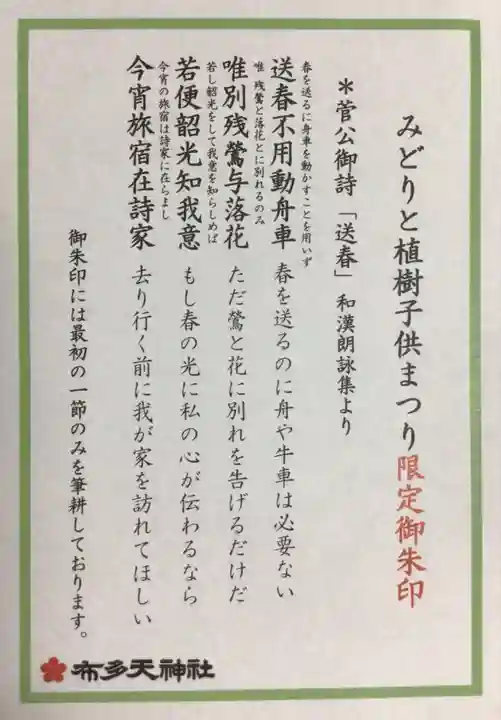 みどりと植樹子供まつり限定御朱印
＊菅公御詩「送春」和漢朗詠集より
春を送るに舟車を動かすことを用いず
送春不用動舟車 春を送るのに舟や牛車は必要ない
唯残鶯と落花とに別れるのみ
唯別残鶯与落花 ただ鶯と花に別れを告げるだけだ
若し韶光をして我意を知らしめば
若便韶光知我意 もし春の光に私の心が伝わるなら
今宵の旅宿は詩家に在らまし
今宵旅宿在詩家 去り行く前に我が家を訪れてほしい
御朱印には最初の一節のみを筆耕しております。
布多天神社